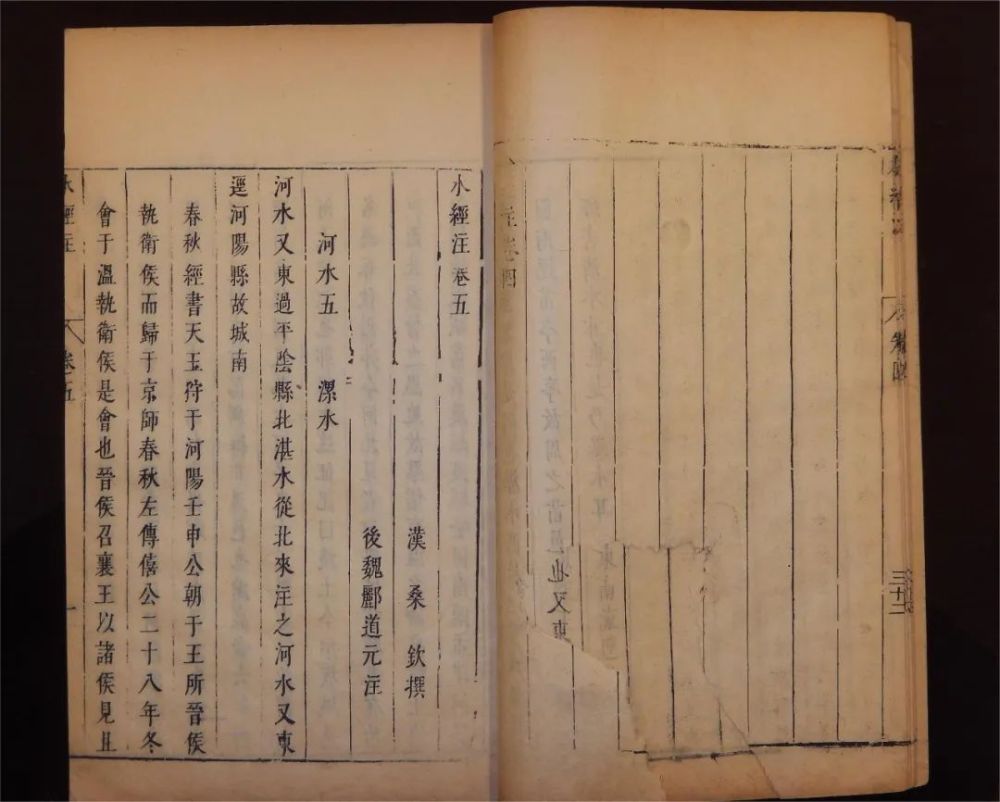 卷四
三十二
注卷四
也又東
水經注卷五
漢 桑欽撰
後魏酈道元注
河水五 漯水
河水又東過平陰縣北湛水從北來注之河水又東
逕河陽縣故城南
春秋經書天王狩于河陽壬申公朝于王所晉侯
執衛侯而歸于京師春秋左傳僖公二十八年冬
會于溫執衛侯是會也晉侯召襄王以諸侯見且
水經注 卷五 一